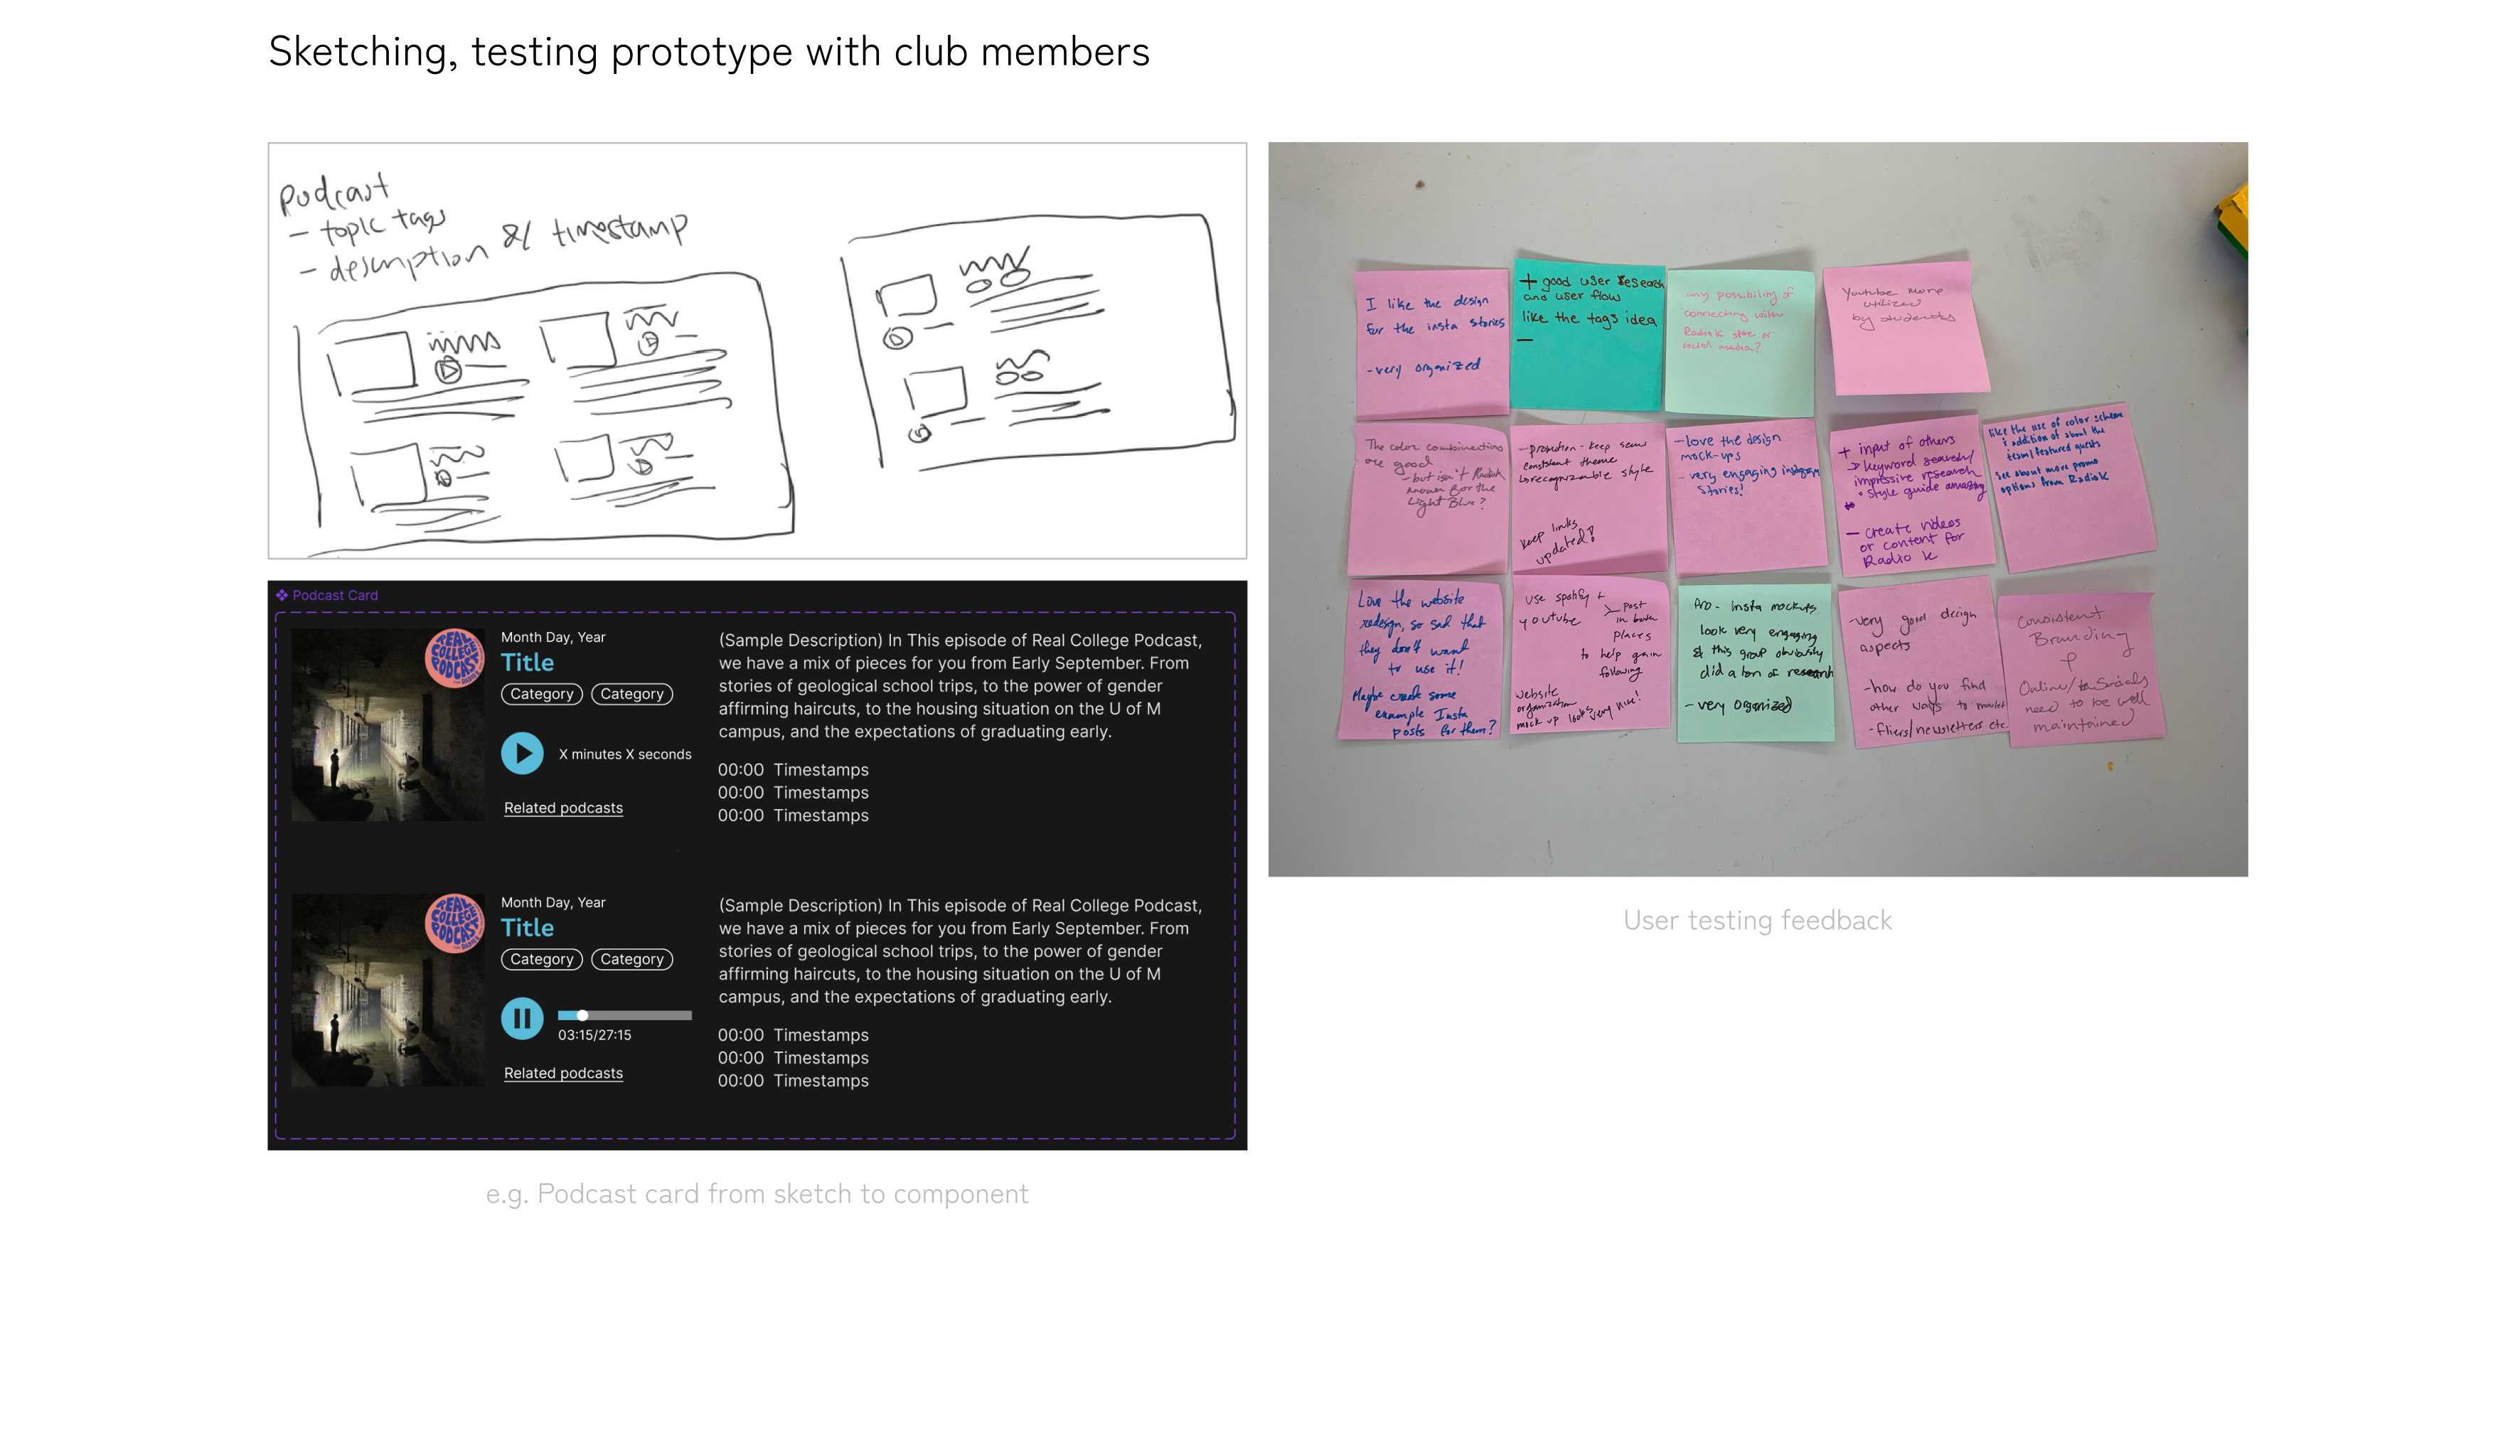 Sketching, testing prototype with club members
Podcast
- topic tags
- description & timestamp
Podcast Card
REAL
COLLEGE
PODCAST
Month Day, Year
Title
Category
Category
X minutes X seconds
Related podcasts
(Sample Description) In This episode of Real College Podcast,
we have a mix of pieces for you from Early September. From
stories of geological school trips, to the power of gender
affirming haircuts, to the housing situation on the U of M
campus, and the expectations of graduating early.
00:00 Timestamps
00:00 Timestamps
00:00 Timestamps
REAL
COLLEGE
PODCAST
Month Day, Year
Title
Category
Category
03:15/27:15
Related podcasts
(Sample Description) In This episode of Real College Podcast,
we have a mix of pieces for you from Early September. From
stories of geological school trips, to the power of gender
affirming haircuts, to the housing situation on the U of M
campus, and the expectations of graduating early.
00:00 Timestamps
00:00 Timestamps
00:00 Timestamps
e.g. Podcast card from sketch to component
I like the design
for the insta stories
-very organized
+ good user research
and user flow
like the tags idea
-
any possibility of
connecting with
RadioK site or
social media?
Youtube more
utilized
by students
The color combinations
are good
- but isn't RadioK
known for the
Light Blue?
- promotion - keep same
consistent theme
recognizable style
keep links
updated!
-love the design
mock-ups
- very engaging instagram
stories!
+ input of others
> keyword search/
impressive research
• Style guide amazing
- create videos
or content for
Radio K
like the use of color scheme
& addition of about the
team/featured guests
See about more promo
options from RadioK
Love the website
redesign, so sad that
they don't want
to use it!
Maybe create some
example Insta
posts for them?
Use spotify +
youtube
> Post
in both
places
to help gain
following
website
organization
mock up looks very nice!
Pro - Insta mockups
look very engaging
& this group obviously
did a ton of research
- very organized
-very good design
aspects
-how do you find
other ways to market
-fliers/newsletters etc.
Consistent
Branding
Online/ Socials
need to be well
maintained
User testing feedback